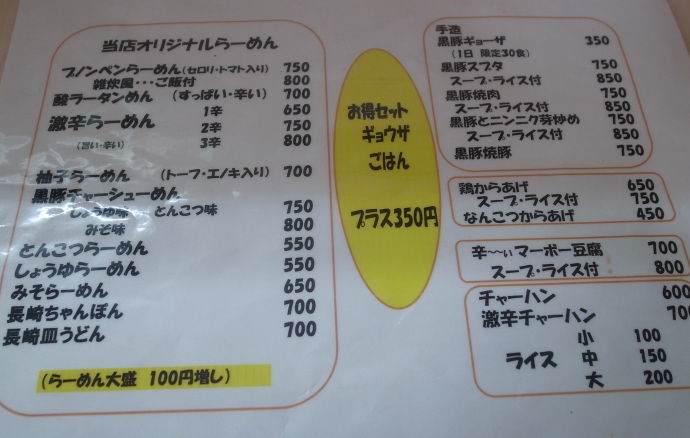 当店オリジナルらーめん
プノンペンらーめん(セロリ・トマト入り) 750
雑炊風・・・ご飯付 800
酸ラータンめん (すっぱい・辛い) 700
激辛らーめん 1辛 650
2辛 750
(旨い・辛い) 3辛 800
柚子らーめん (トーフ・エノキ入り) 700
黒豚チャーシューめん
しょうゆ味 とんこつ味 750
みそ味 800
とんこつらーめん 550
しょうゆらーめん 550
みそらーめん 650
長崎ちゃんぽん 700
長崎皿うどん 700
(らーめん大盛 100円増し)
お得セット
ギョウザ
ごはん
プラス350円
手造
黒豚ギョーザ 350
(1日 限定30食)
黒豚スブタ 750
スープ・ライス付 850
黒豚焼肉 750
スープ・ライス付 850
黒豚とニンニク芽炒め 750
スープ・ライス付 850
黒豚焼豚 750
鶏からあげ 650
スープ・ライス付 750
なんこつからあげ 450
辛〜ぃマーボー豆腐 700
スープ・ライス付 800
チャーハン 600
激辛チャーハン 700
小 100
ライス 中 150
大 200